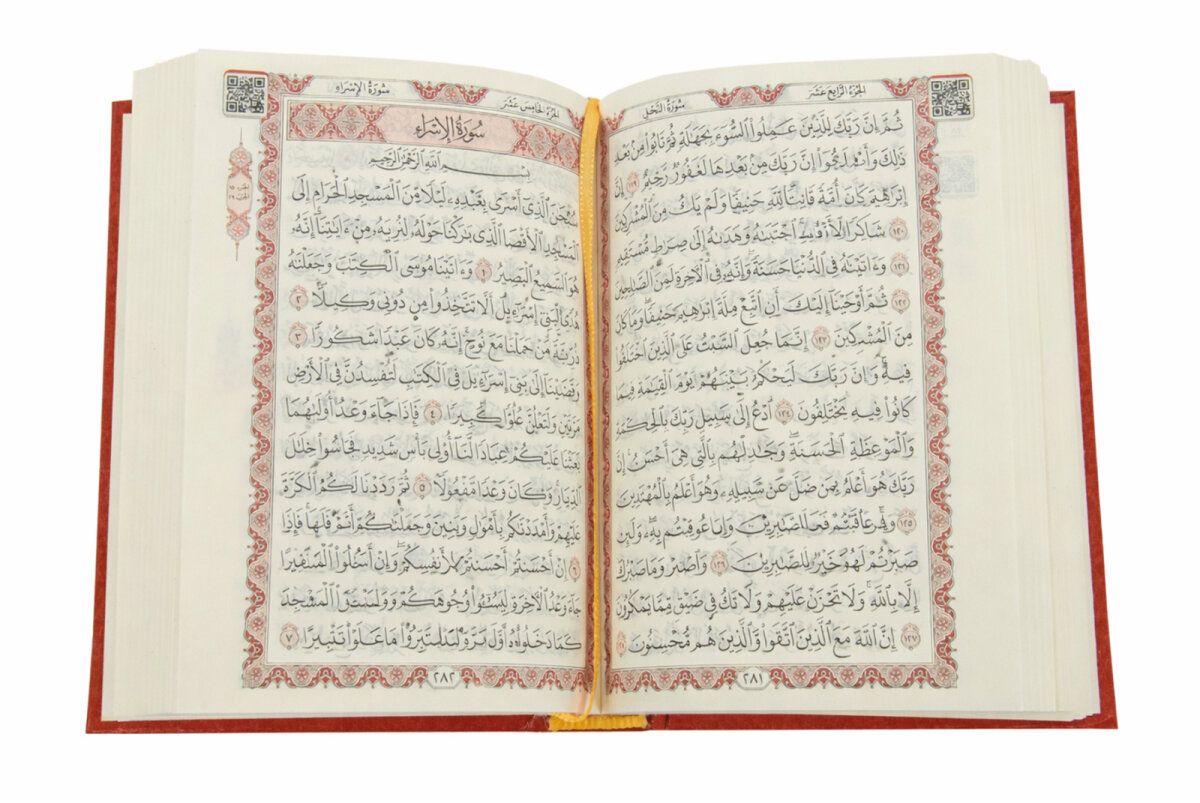 سُورَةُ النَّحْلِ
الجُزْءُ الرَّابِعَ عَشَرَ
ثُمَّ إِنَّ رَبَّكَ لِلَّذِينَ عَمِلُوا۟ السُّوٓءَ بِجَهَٰلَةٍ ثُمَّ تَابُوا۟ مِنۢ بَعْدِ
ذَٰلِكَ إِنَّ رَبَّكَ مِنۢ بَعْدِهَا لَغَفُورٌ رَّحِيمٌ ١١٩ إِنَّ
إِبْرَٰهِيمَ كَانَ أُمَّةً قَانِتًا لِّلَّهِ حَنِيفًا وَلَمْ يَكُ مِنَ الْمُشْرِكِينَ
١٢٠ شَاكِرًا لِّأَنْعُمِهِ اجْتَبَىٰهُ وَهَدَىٰهُ إِلَىٰ صِرَٰطٍ مُّسْتَقِيمٍ
١٢١ وَءَاتَيْنَٰهُ فِى الدُّنْيَا حَسَنَةً وَإِنَّهُۥ فِى الْءَاخِرَةِ لَمِنَ الصَّٰلِحِينَ
١٢٢ ثُمَّ أَوْحَيْنَآ إِلَيْكَ أَنِ اتَّبِعْ مِلَّةَ إِبْرَٰهِيمَ حَنِيفًا وَمَا كَانَ
مِنَ الْمُشْرِكِينَ ١٢٣ إِنَّمَا جُعِلَ السَّبْتُ عَلَى الَّذِينَ اخْتَلَفُوا۟
فِيهِ وَإِنَّ رَبَّكَ لَيَحْكُمُ بَيْنَهُمْ يَوْمَ الْقِيَٰمَةِ فِيمَا
كَانُوا۟ فِيهِ يَخْتَلِفُونَ ١٢٤ ادْعُ إِلَىٰ سَبِيلِ رَبِّكَ بِالْحِكْمَةِ
وَالْمَوْعِظَةِ الْحَسَنَةِ وَجَٰدِلْهُم بِالَّتِى هِىَ أَحْسَنُ إِنَّ
رَبَّكَ هُوَ أَعْلَمُ بِمَن ضَلَّ عَن سَبِيلِهِۦ وَهُوَ أَعْلَمُ بِالْمُهْتَدِينَ
١٢٥ عُوقِبْتُم بِهِۦ وَلَئِن
صَبَرْتُمْ لَهُوَ خَيْرٌ لِّلصَّٰبِرِينَ ١٢٦ وَاصْبِرْ وَمَا صَبْرُكَ
إِلَّا بِاللَّهِ وَلَا تَحْزَنْ عَلَيْهِمْ وَلَا تَكُ فِى ضَيْقٍ مِّمَّا يَمْكُرُونَ
١٢٧ إِنَّ اللَّهَ مَعَ الَّذِينَ اتَّقَوا۟ وَّالَّذِينَ هُم مُّحْسِنُونَ
٢٨١
سُورَةُ الإِسْرَاءِ
الجُزْءُ الخَامِسَ عَشَرَ
سُورَةُ الإِسْرَاءِ
بِسْمِ اللَّهِ الرَّحْمَٰنِ الرَّحِيمِ
سُبْحَٰنَ الَّذِىٓ أَسْرَىٰ بِعَبْدِهِۦ لَيْلًا مِّنَ الْمَسْجِدِ الْحَرَامِ إِلَى
الْمَسْجِدِ الْأَقْصَا الَّذِى بَٰرَكْنَا حَوْلَهُۥ لِنُرِيَهُۥ مِنْ ءَايَٰتِنَآ إِنَّهُۥ
هُوَ السَّمِيعُ الْبَصِيرُ ١ وَءَاتَيْنَا مُوسَى الْكِتَٰبَ وَجَعَلْنَٰهُ
هُدًى لِّبَنِىٓ إِسْرَٰٓءِيلَ أَلَّا تَتَّخِذُوا۟ مِن دُونِى وَكِيلًا ٢
ذُرِّيَّةَ مَنْ حَمَلْنَا مَعَ نُوحٍ إِنَّهُۥ كَانَ عَبْدًا شَكُورًا ٣
وَقَضَيْنَآ إِلَىٰ بَنِىٓ إِسْرَٰٓءِيلَ فِى الْكِتَٰبِ لَتُفْسِدُنَّ فِى الْأَرْضِ
مَرَّتَيْنِ وَلَتَعْلُنَّ عُلُوًّا كَبِيرًا ٤ فَإِذَا جَآءَ وَعْدُ أُولَىٰهُمَا
بَعَثْنَا عَلَيْكُمْ عِبَادًا لَّنَآ أُو۟لِى بَأْسٍ شَدِيدٍ فَجَاسُوا۟ خِلَٰلَ
الدِّيَارِ وَكَانَ وَعْدًا مَّفْعُولًا ٥ ثُمَّ رَدَدْنَا لَكُمُ الْكَرَّةَ
عَلَيْهِمْ وَأَمْدَدْنَٰكُم بِأَمْوَٰلٍ وَبَنِينَ وَجَعَلْنَٰكُمْ
٦ إِنْ أَحْسَنتُمْ أَحْسَنتُمْ لِأَنفُسِكُمْ وَإِنْ
جَآءَ وَعْدُ الْءَاخِرَةِ وُجُوهَكُمْ الْمَسْجِدَ
كَمَا دَخَلُوهُ أَوَّلَ مَرَّةٍ وَلِيُتَبِّرُوا۟ مَا عَلَوْا۟ تَتْبِيرًا ٧
٢٨٢